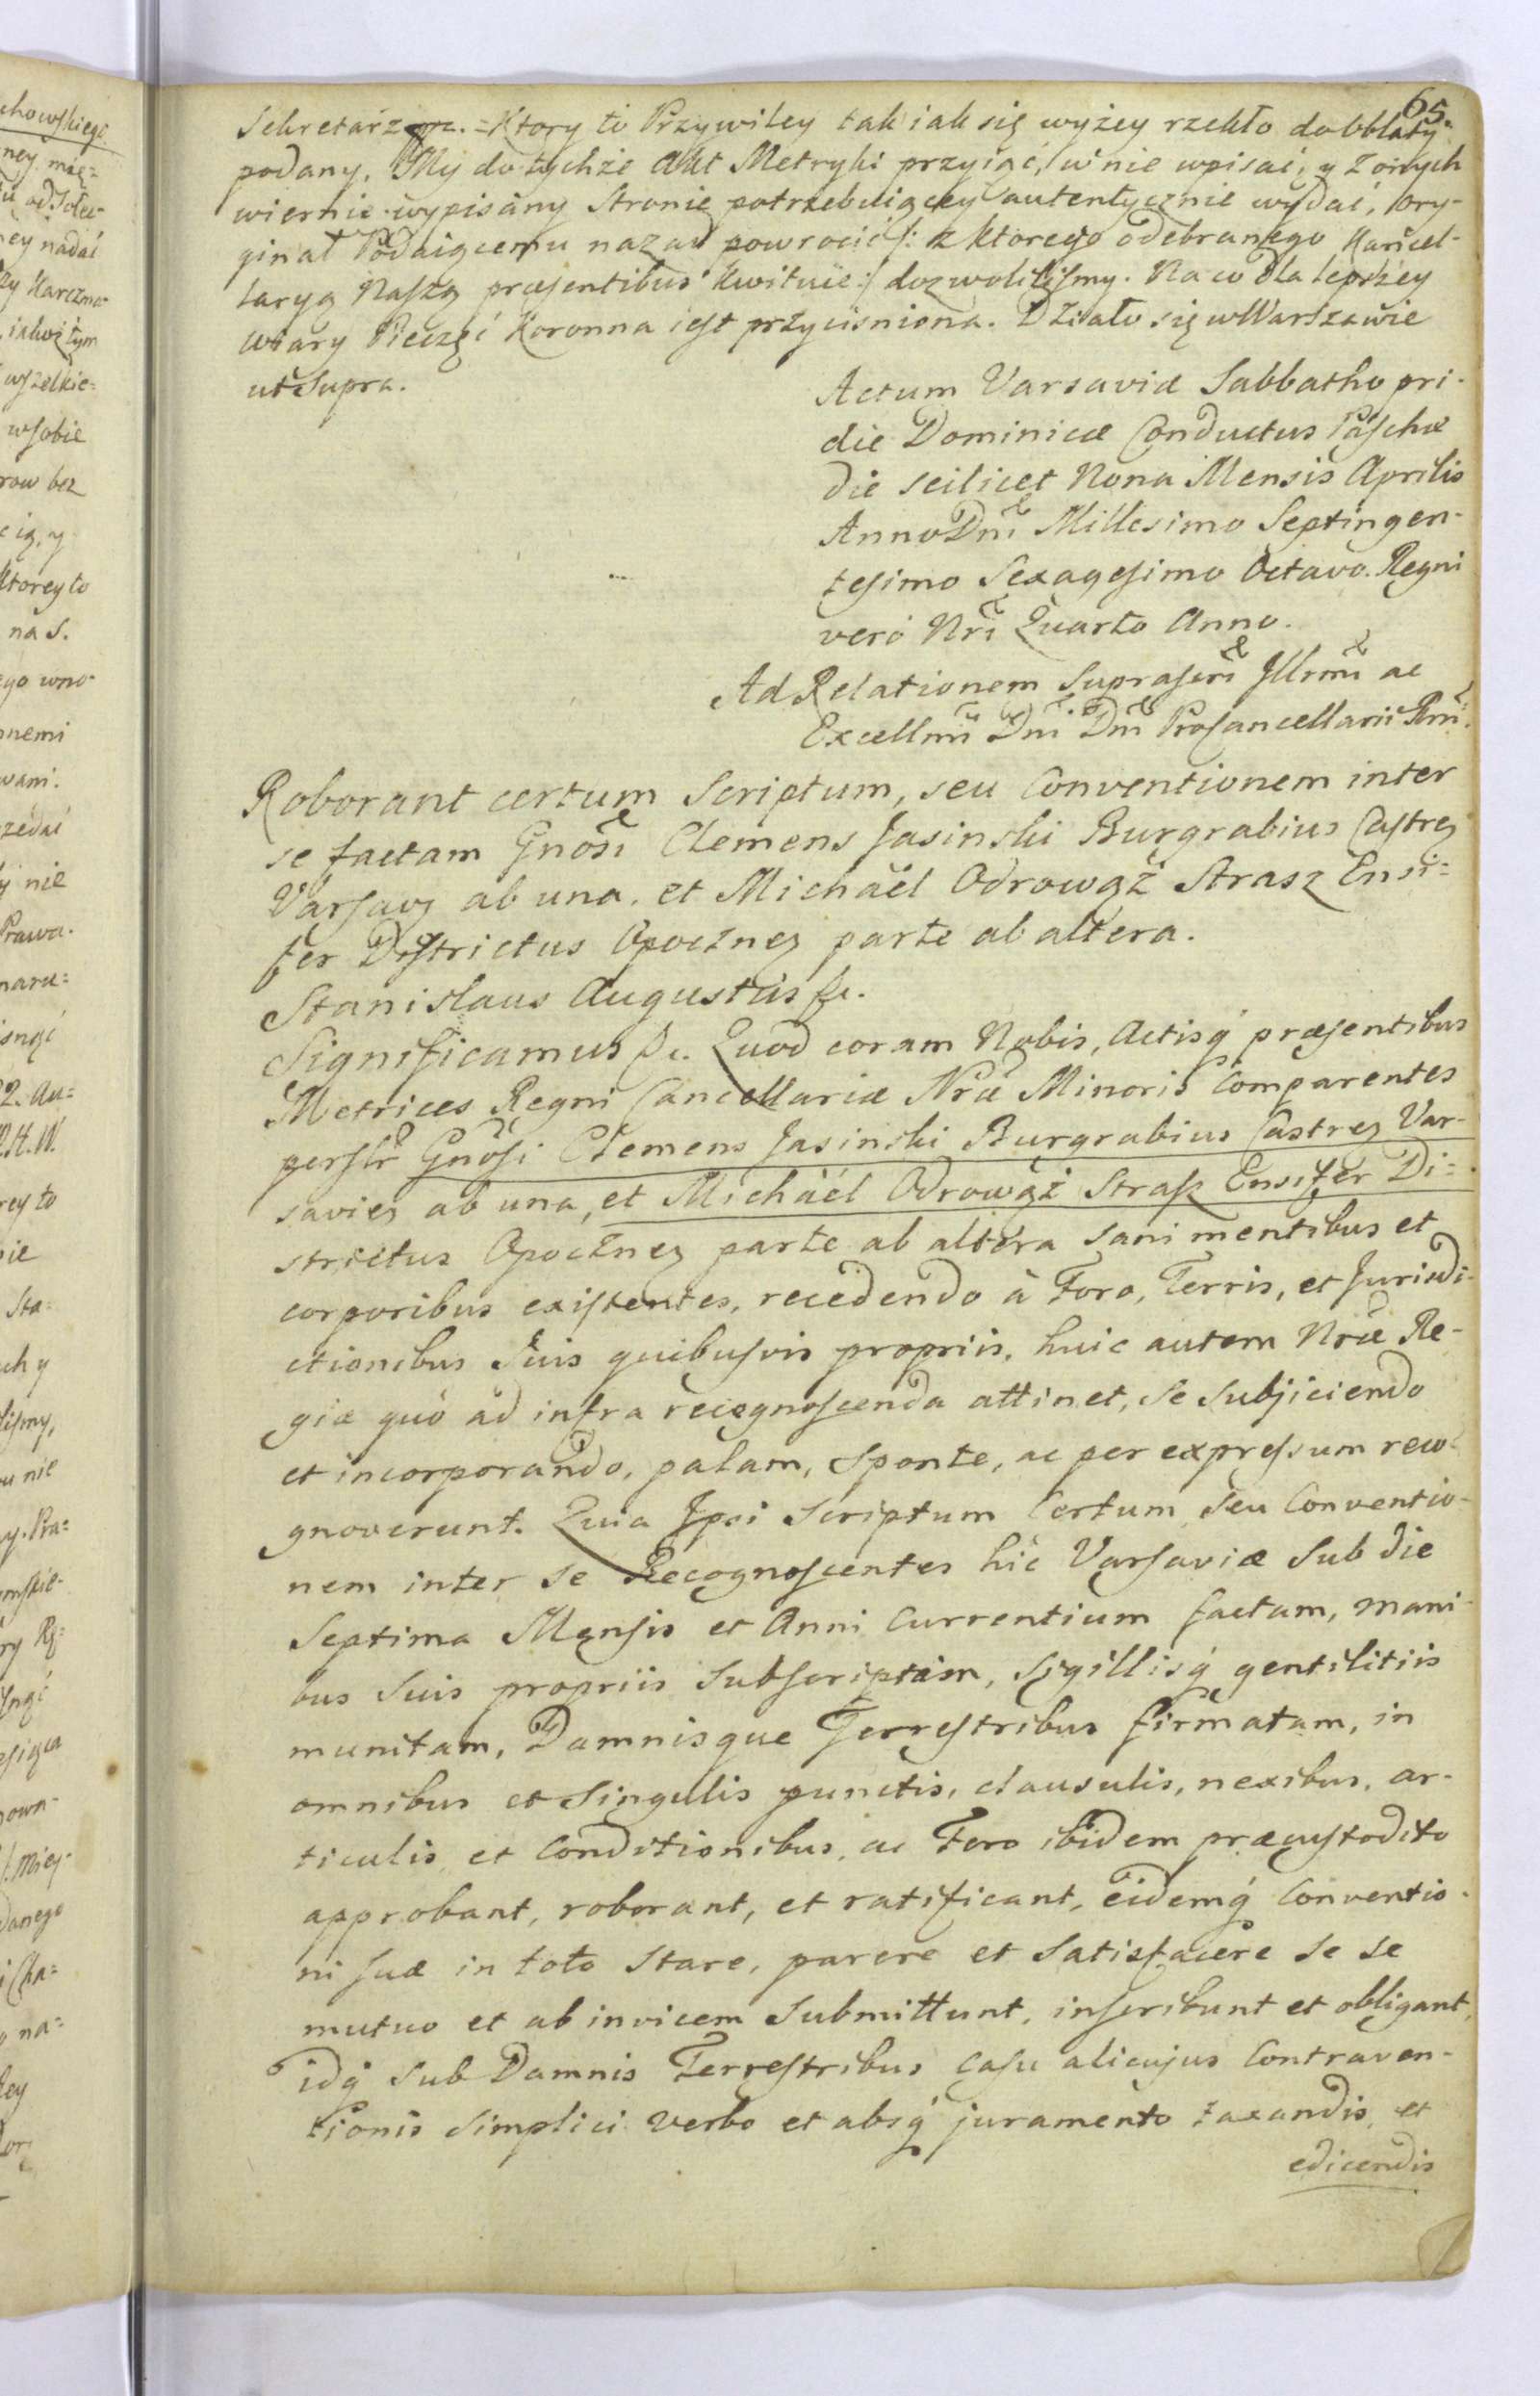 65
Sekretarz mc. = Ktory to Przywiley tak iak się wyżey rzekło do oblaty
podany, My do tychże Akt Metryki przyiąć, w nie wpisać, y z onych
wiernie wypisany Stronie potrzebuiącey autentycznie wydać, ory-
ginał Podaiącemu nazad powrocić /: z ktorego odebranego Kancel-
laryą Naszą præsentibus kwituie :/ dozwolilismy. Na co dla lepszey
wiary Pieczęć Koronna iest przycisniona. Działo się w Warszawie
ut Supra.
Actum Varsaviæ Sabbatho pri-
die Dominicæ Conductus Paschæ
die scilicet Nona Mensis Aprilis
Anno Dni Millesimo Septingen-
tesimo Sexagesimo Octavo. Regni
vero Nri Quarto Anno.
Ad Relationem Suprascri Jllrmi ac
Excellmi Dni Dni ProCancellarii Rni.
Roborant certum Scriptum, seu Conventionem inter
se factam Gnosi Clemens Jasinski Burgrabius Castreȝ
Varsavȝ ab una, et Michaël Odrowąż Strasz Ensi-
fer Districtus Opoczneȝ parte ab altera.
Stanislaus Augustus &c.
Significamus &c. Quod coram Nobis, Actisq præsentibus
Metrices Regni Cancellariæ Nræ Minoris Comparentes
perslr Gnosi Clemens Jasinski Burgrabius Castreȝ Var-
savieȝ ab una, et Michaël Odrowąż Strasz Ensifer Di-
strictus Opoczneȝ parte ab altera Sani mentibus et
corporibus existentes, recedendo à Foro, Terris, et Jurisdi-
ctionibus Suis quibusvis propriis, huic autem Nræ Re-
giæ quo ad infra recognoscenda attinet, Se Subjiciendo
et incorporando, palam, Sponte, ac per expressum reco-
gnoverunt. Quia Ipsi Scriptum Certum, Seu Conventio-
nem inter se Recognoscentes hic Varsaviæ Sub die
Septima Mensis et Anni Currentium factam, mani-
bus Suis propriis Subscriptam, Sigillisq gentilitiis
munitam, Damnisque Terrestribus firmatam, in
omnibus et Singulis punctis, clausulis, nexibus, ar-
ticulis et Conditionibus, ac Foro ibidem præcustodito
approbant, roborant, et ratificant, eidemq Conventio-
ni suæ in toto Stare, parere et Satisfacere Se Se
mutuo et ab invicem Submittunt, inscribunt et obligant,
idq Sub Damnis Terrestribus casu alicujus Contraven-
tionis Simplici verbo et absq juramento taxandis, et
edicendis